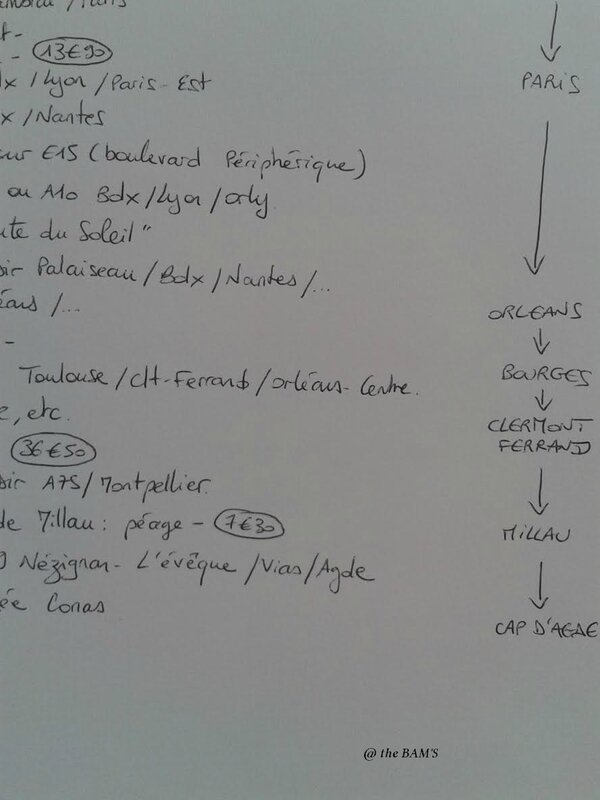 /Paris
13€90
/Lyon/Paris-Est
/Nantes
sur E15 (boulevard Périphérique)
ou A10 Bdx/Lyon/Orly
du Soleil"
Palaiseau/Bdx/Nantes/...
/...
-
Toulouse/Clt-Ferrand/Orléans-Centre.
, etc.
36€50
A75/Montpellier.
de Millau: péage - 7€30
Nézignan-L'évêque/Vias/Agde
Conas
PARIS
ORLEANS
BOURGES
CLERMONT
FERRAND
MILLAU
CAP D'AGDE
@ the BAM'S